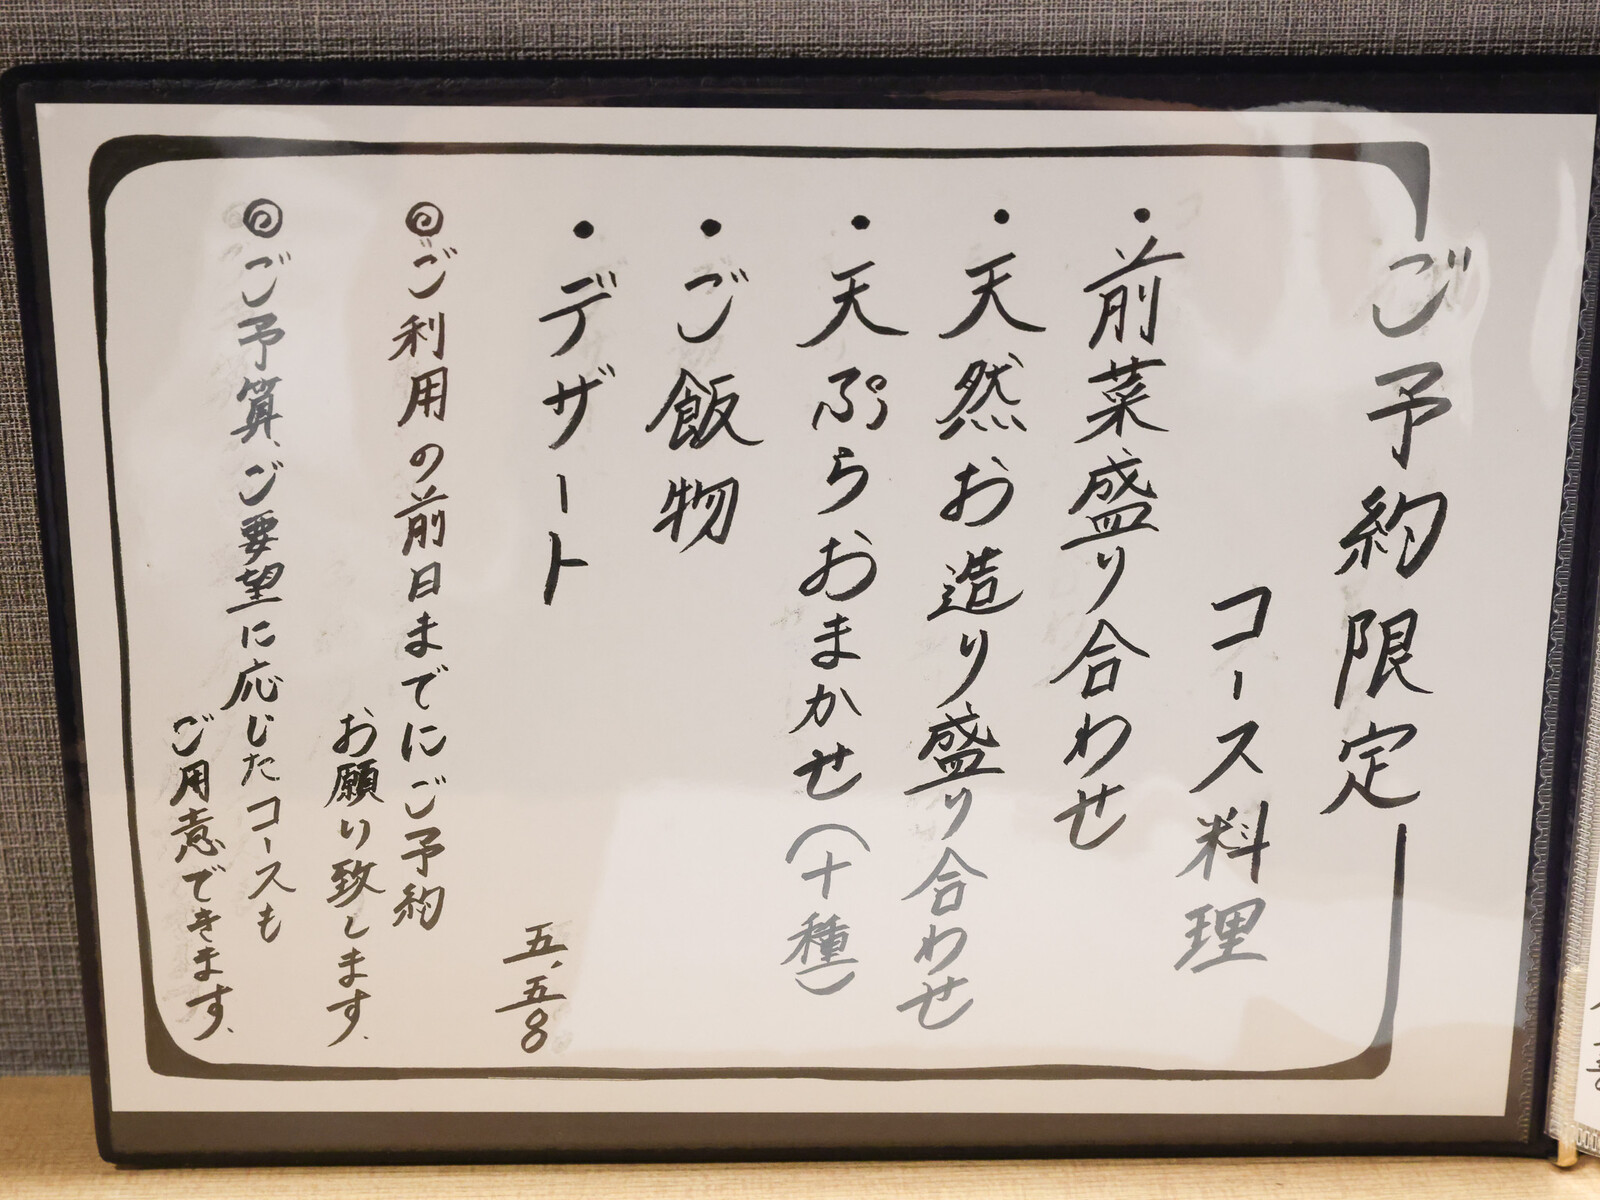 ご予約限定
コース料理
・前菜盛り合わせ
・天然お造り盛り合わせ
・天ぷらおまかせ(十種)
・ご飯物
・デザート
五、五〇
◎ご利用の前日までにご予約
お願い致します。
◎ご予算、ご要望に応じたコースも
ご用意できます。